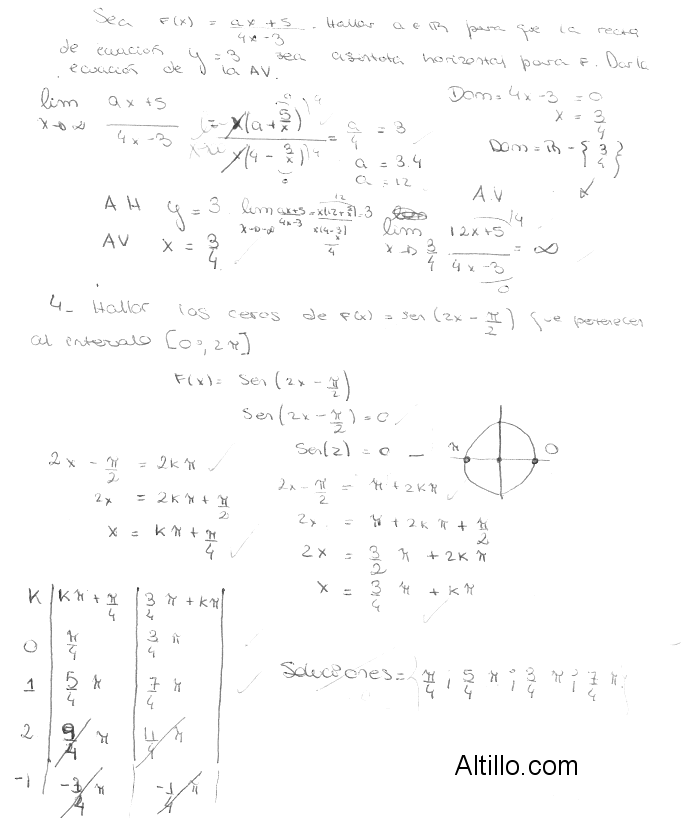 Sea F(x) = ax + 5 / 4x - 3 . Hallar a ∈ R para que la recta
de ecuación y = 3 sea asíntota horizontal para F. Dar la
ecuación de la AV.
lim x→∞ ax + 5 / 4x - 3 = x(a + 5/x) / x(4 - 3/x) = a/4 = 3
a = 3.4
a = 12
Dom = 4x - 3 = 0
x = 3/4
Dom = R - {3/4}
AH y = 3 lim x→∞ ax+5 / 4x-3 = x(12+5/x) / x(4-3/x) = 3
AV x = 3/4
A.V
lim x→3/4 12x + 5 / 4x - 3 = ∞
4_ Hallar los ceros de F(x) = sen(2x - π/2) que pertenecen
al intervalo [0, 2π]
F(x) = Sen(2x - π/2)
Sen(2x - π/2) = 0
Sen(z) = 0 π 0
2x - π/2 = 2kπ
2x = 2kπ + π/2
x = kπ + π/4
2x - π/2 = π + 2kπ
2x = π + 2kπ + π/2
2x = 3/2 π + 2kπ
x = 3/4 π + kπ
K kπ + π/4 3/4 π + kπ
0 π/4 3/4 π
1 5/4 π 7/4 π
2 9/4 π 11/4 π
-1 -3/4 π -1/4 π
Soluciones = {π/4 ; 5/4 π ; 3/4 π ; 7/4 π}
Altillo.com